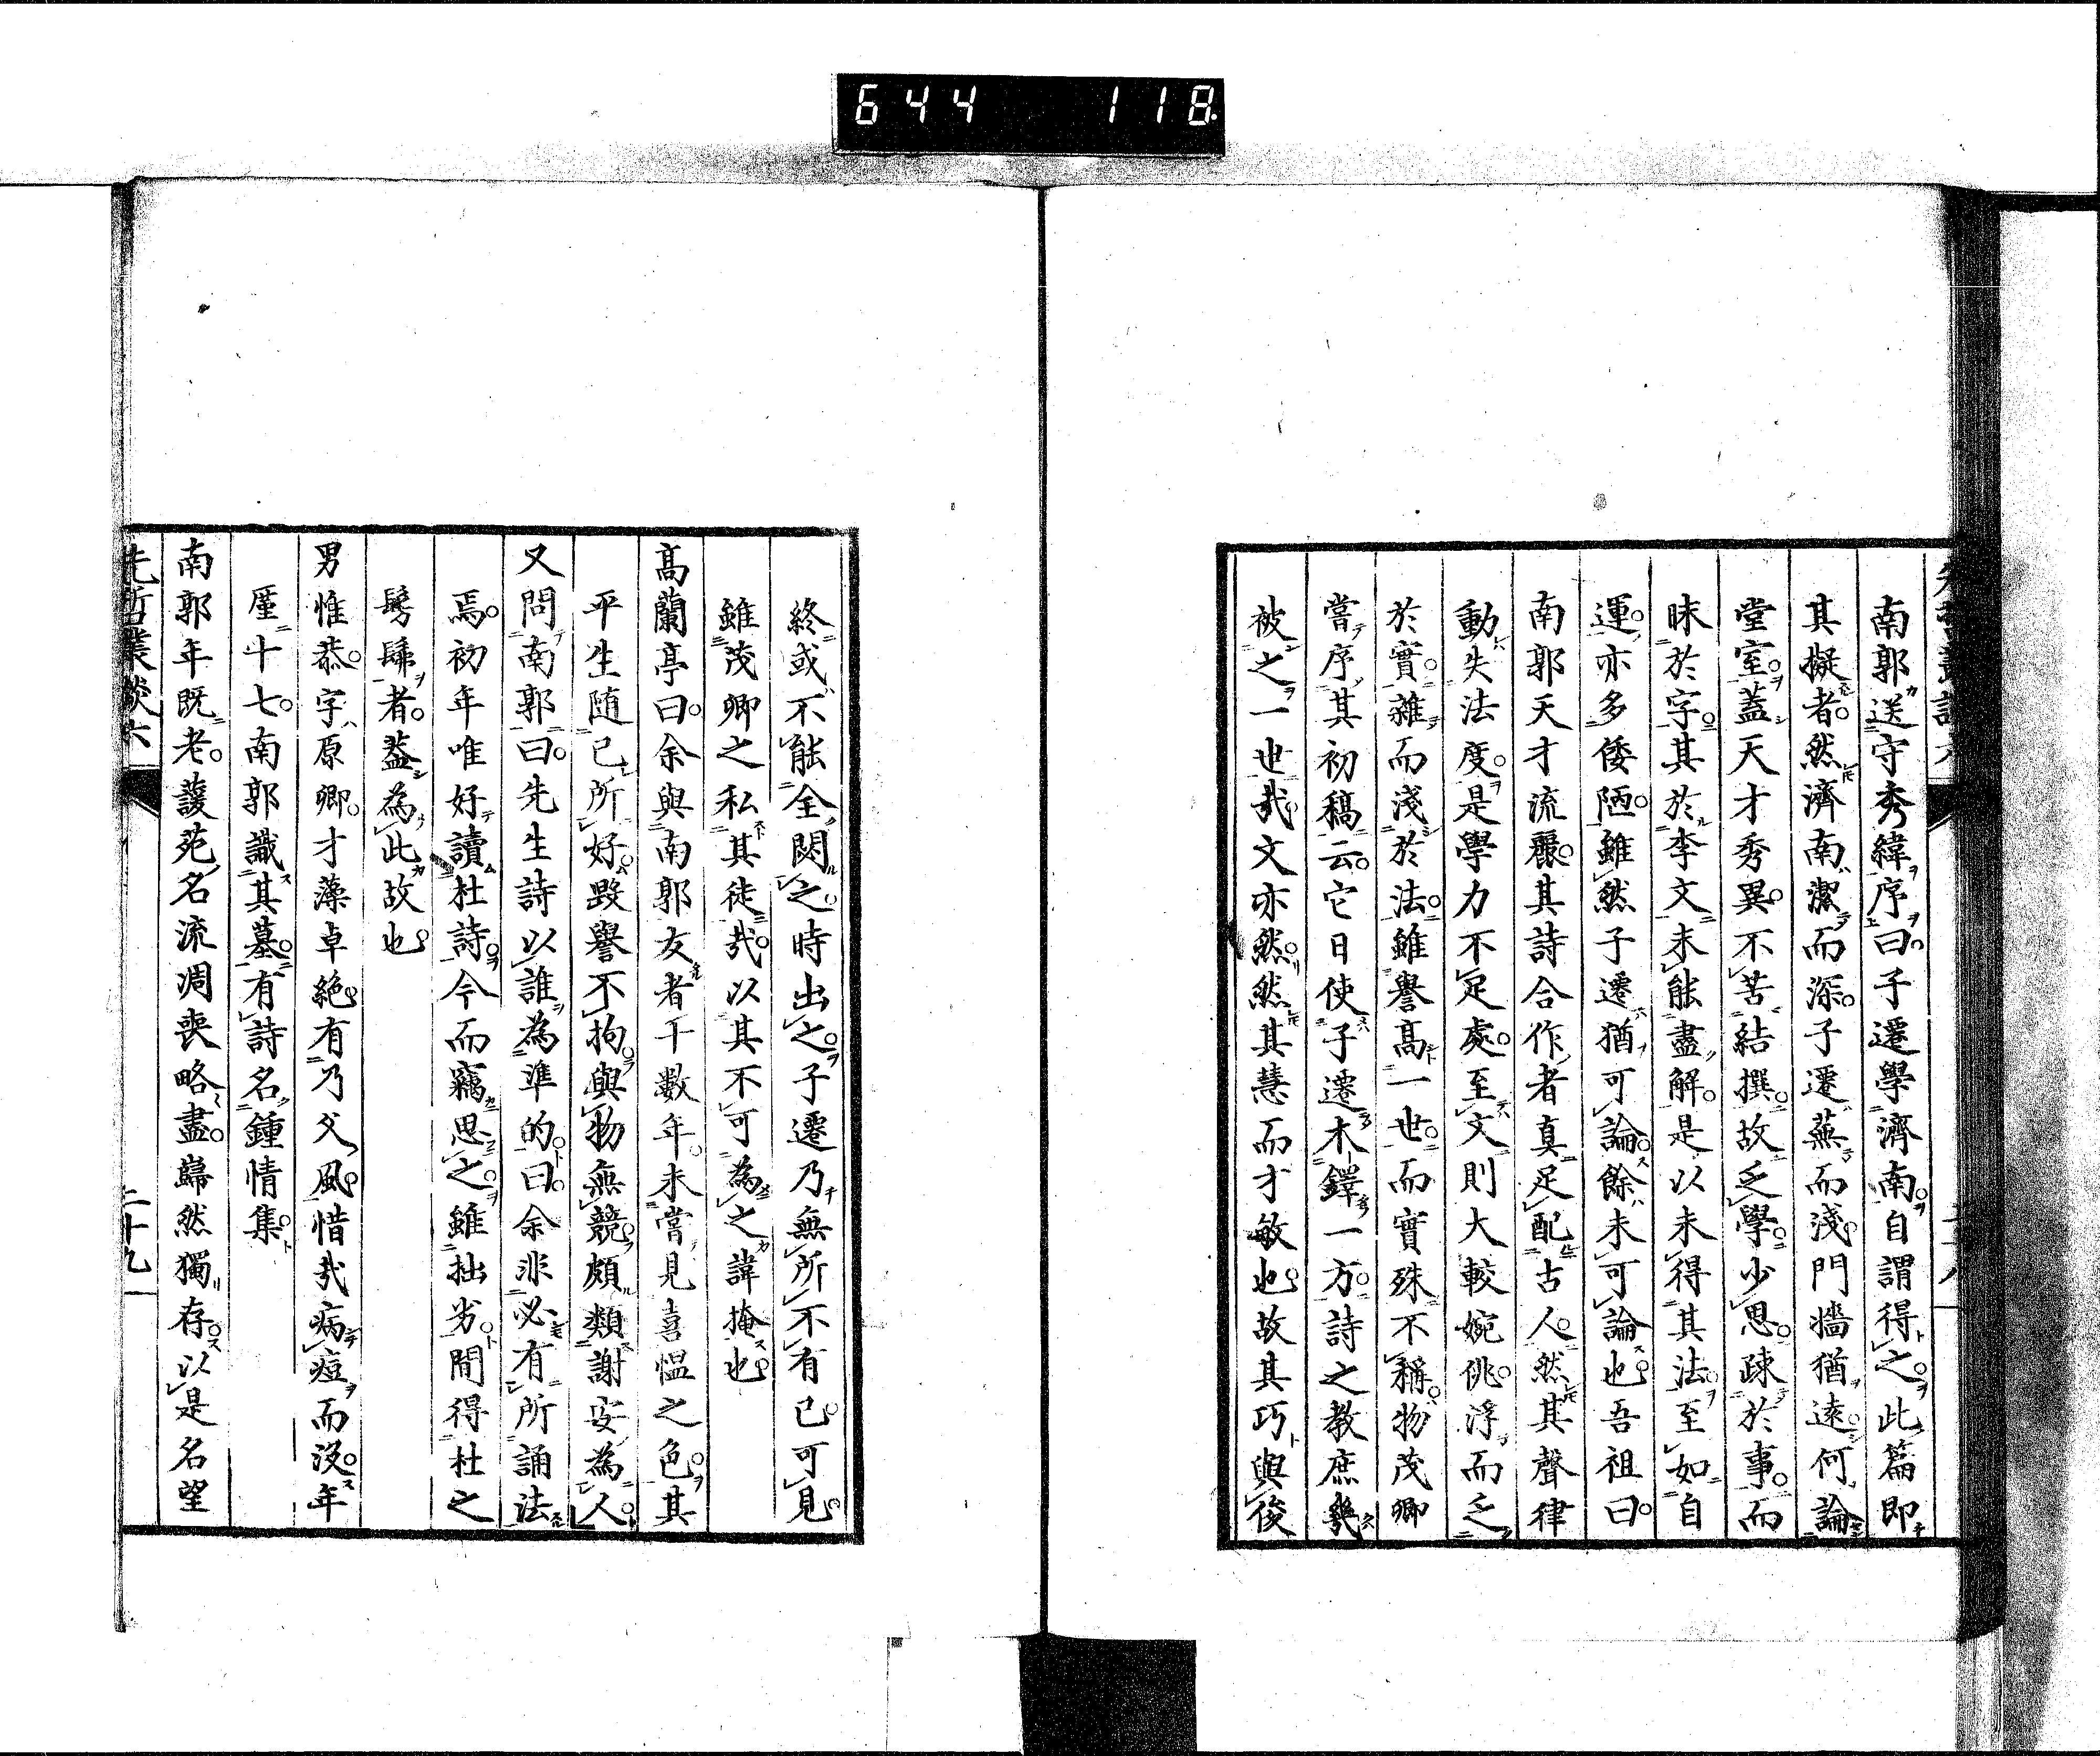 644 118
南郭送守秀緯序曰子遷學濟南自謂得之此篇即
其擬者然濟南潔而深子遷蕪而淺門牆猶遠何論
堂室蓋天才秀異不苦結撰故乏學少思疎於事而
昧於字其於李文未能盡解是以未得其法至如自
運亦多倭陋雖然子遷猶可論餘未可論也吾祖曰
南郭天才流麗其詩合作者真足配古人然其聲律
動失法度是學力不足處至文則大較婉佻浮而乏
於實雜而淺於法雖譽高一世而實殊不稱物茂卿
嘗序其初稿云它日使子遷木鐸一方詩之教庶幾
被之一世哉文亦然然其慧而才敏也故其巧與後
終或不能全閟之時出之子遷乃無所不有已可見
雖茂卿之私其徒哉以其不可為之諱掩也
高蘭亭曰余與南郭友者十數年未嘗見喜慍之色其
平生隨己所好毀譽不拘與物無競頗類謝安為人
又問南郭曰先生詩以誰為準的曰余非必有所誦法
焉初年唯好讀杜詩今而竊思之雖拙劣間得杜之
髣髴者蓋為此故也
男惟恭字原卿才藻卓絕有乃父風惜哉病痘而沒年
厪十七南郭識其墓有詩名鍾情集
南郭年既老蘐苑名流凋喪略盡巋然獨存以是名望
先哲叢談六
二十九